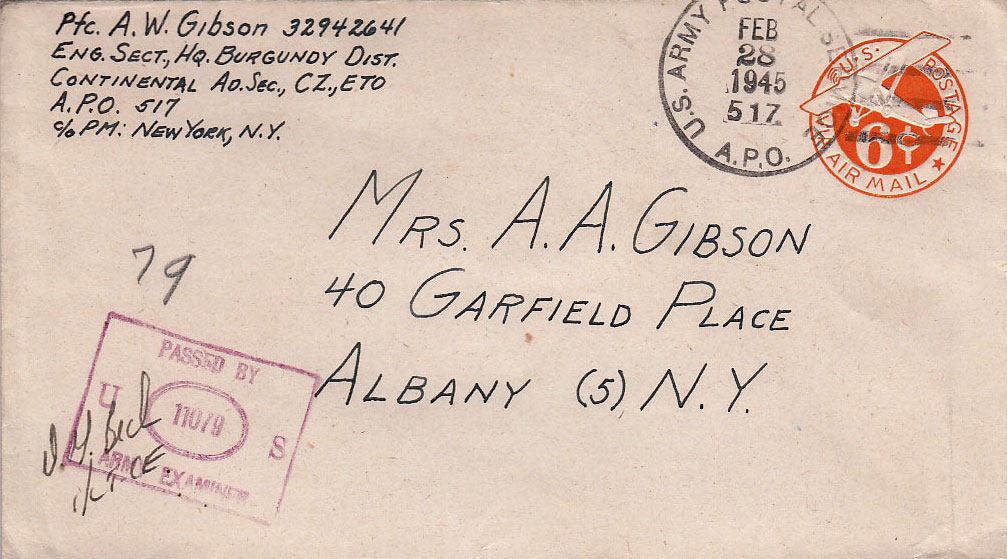 Pfc. A. W. Gibson 32942641
ENG. SECT., HQ. BURGUNDY DIST.
CONTINENTAL AD. SEC., CZ., ETO
A.P.O. 517
c/o PM: NEW YORK, N.Y.
U.S. ARMY POSTAL
FEB
28
1945
517
A.P.O.
U.S. POSTAGE
6¢
AIR MAIL
MRS. A. A. GIBSON
40 GARFIELD PLACE
ALBANY (5) N.Y.
79
PASSED BY
U 11079 S
ARMY EXAMINER